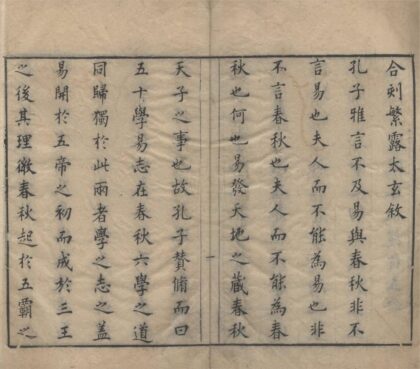 合刻繁露太玄敘
孔子雅言不及易與春秋非不
言易也夫人而不能為易也非
不言春秋也夫人而不能為春
秋也何也易發天地之藏春秋
一
天子之事也故孔子贊脩而曰
五十學易志在春秋六學之道
同歸獨於此兩者學之志之蓋
易開於五帝之初而成於三王
之後其理微春秋起於五霸之